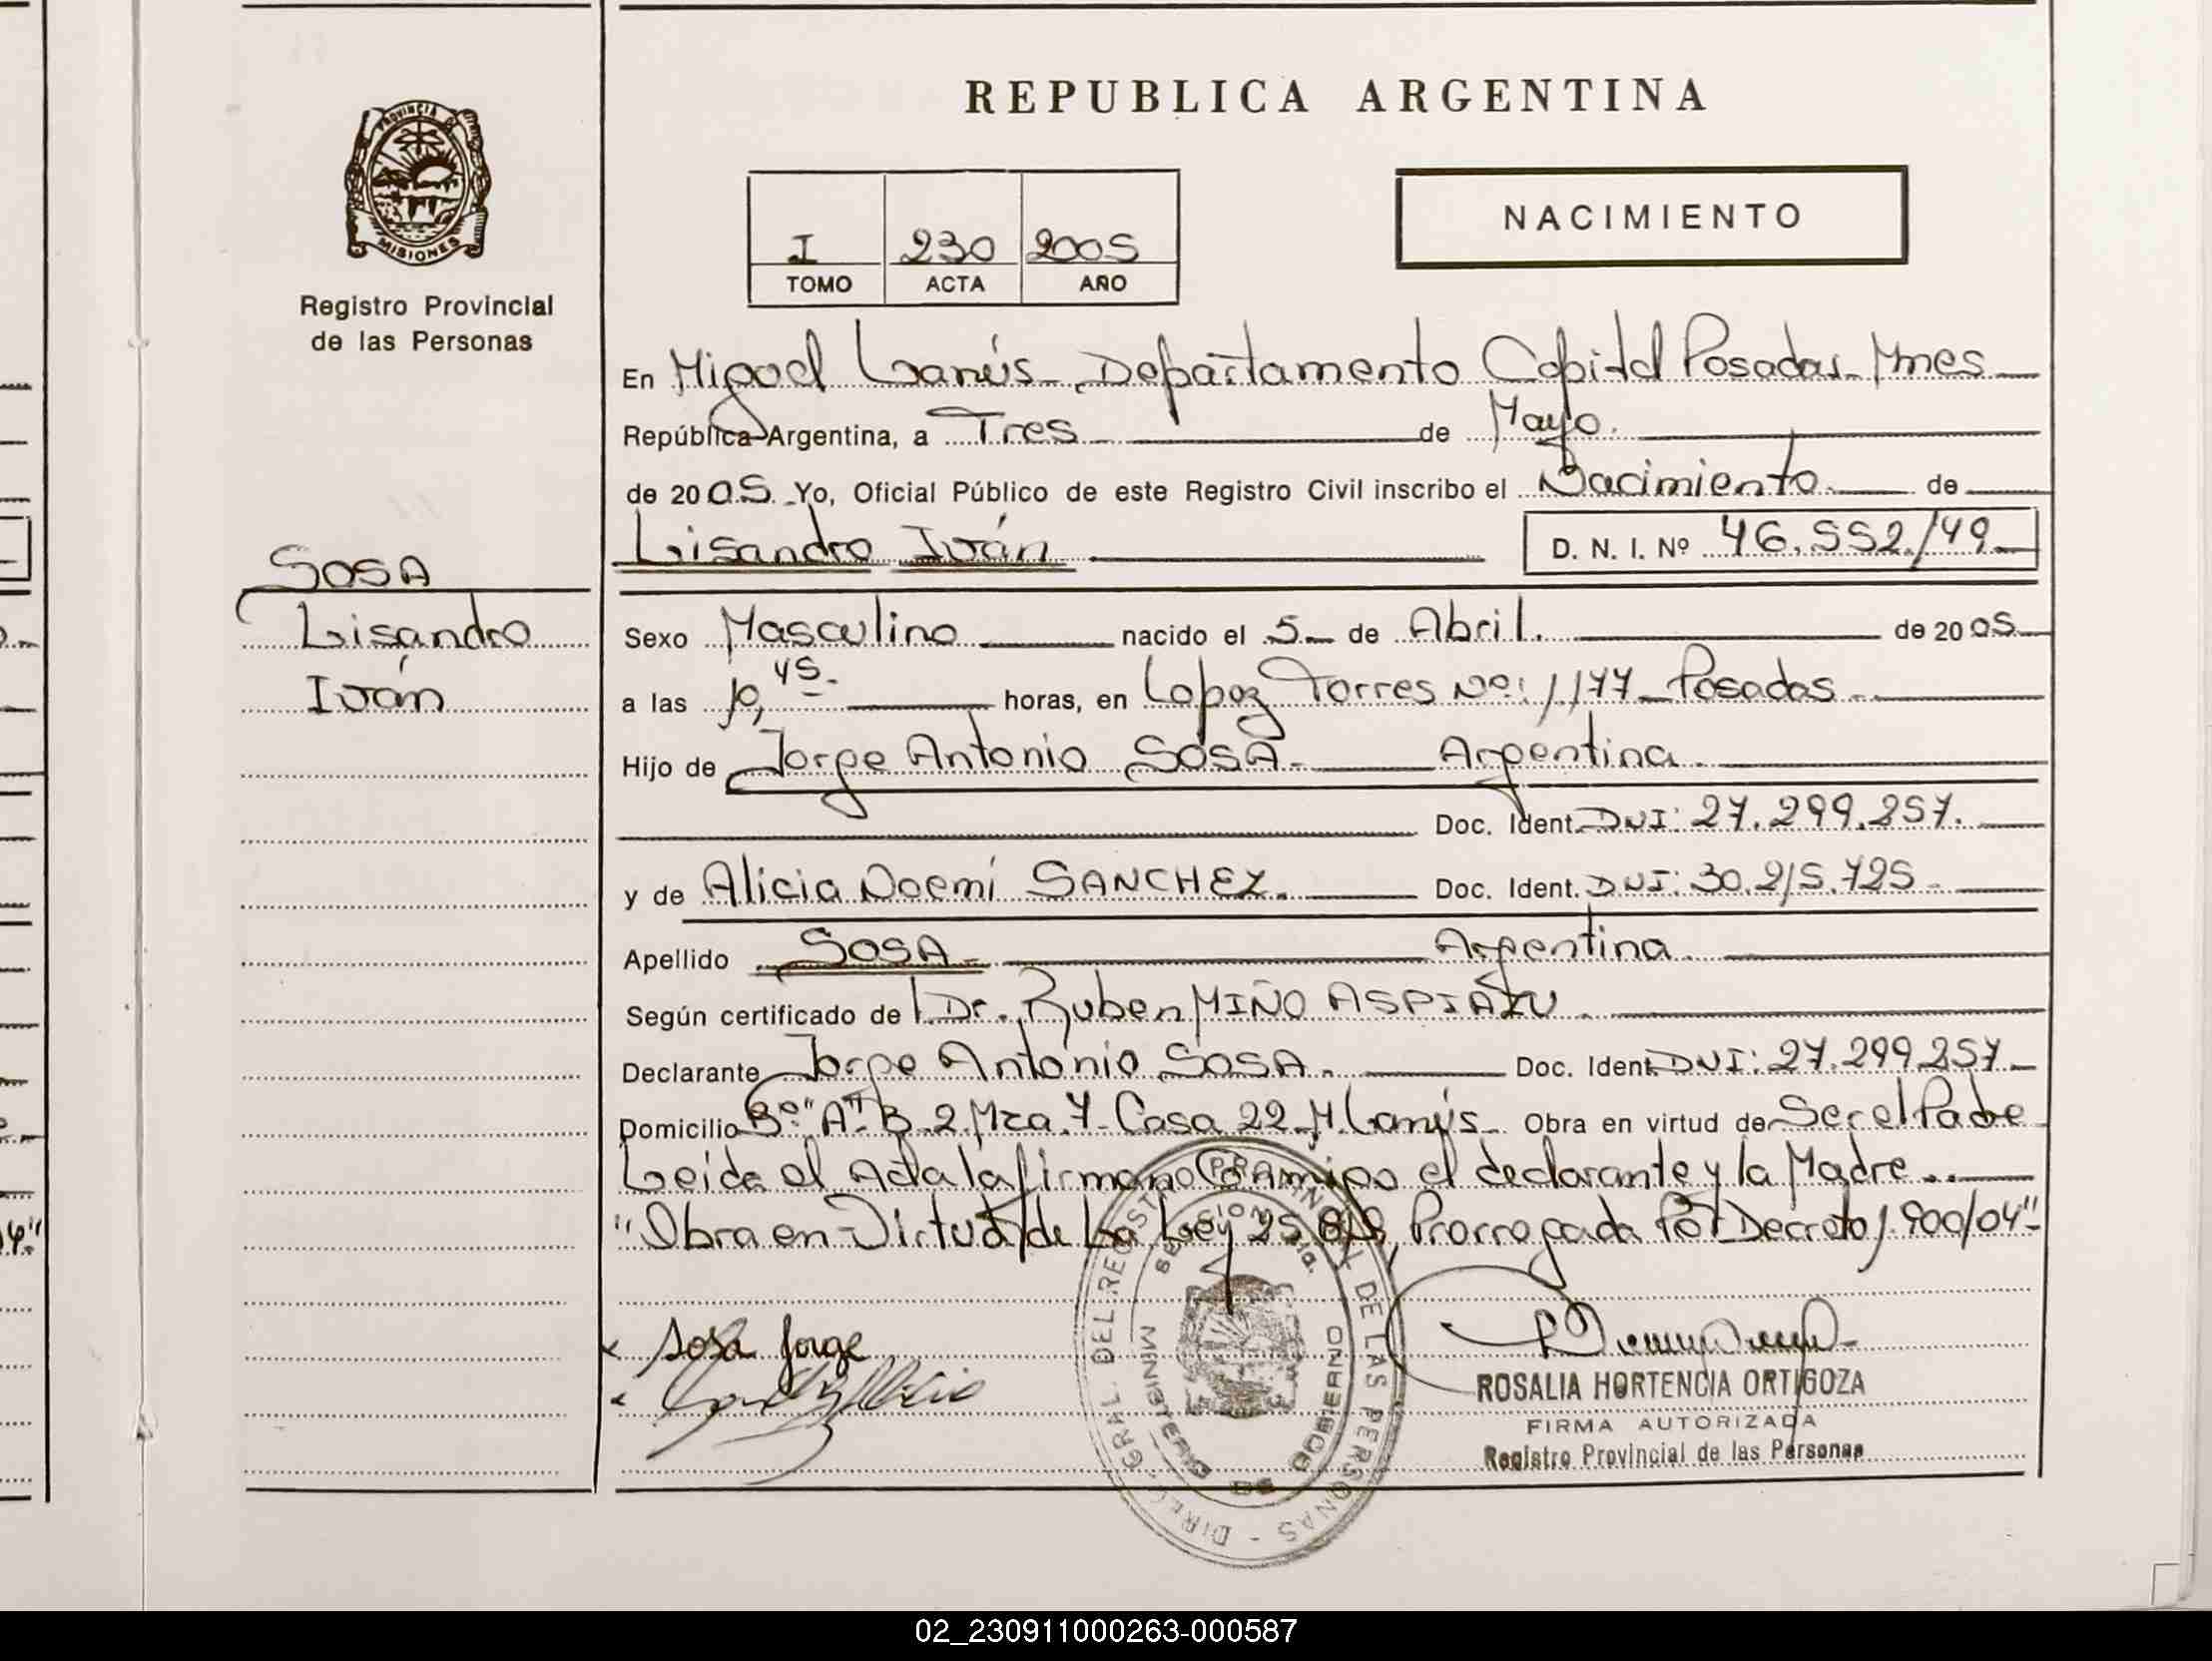 REPUBLICA ARGENTINA
PROVINCIA DE
MISIONES
Registro Provincial
de las Personas
I 230 2005
TOMO ACTA AÑO
NACIMIENTO
En Miguel Lanús - Departamento Capital Posadas - Mnes
República Argentina, a Tres de Mayo.
de 2005. Yo, Oficial Público de este Registro Civil inscribo el Nacimiento de
Lisandro Iván D. N. I. Nº 46.552.149
SOSA
Lisandro
Iván
Sexo Masculino nacido el 5 de Abril. de 2005
a las 10,45 horas, en Lopez Torres Nº: 1177 - Posadas
Hijo de Jorge Antonio SOSA - Argentina.
Doc. Ident. DNI: 27.299.257.
y de Alicia Noemí SANCHEZ. Doc. Ident. DNI: 30.215.725
Apellido SOSA - Argentina.
Según certificado de Dr. Ruben MIÑO ASPIAZU.
Declarante Jorge Antonio SOSA. Doc. Ident. DNI: 27.299.257
Domicilio Bº "A" - B. 2. Mza. 7 - Casa 22. M. Lanús. Obra en virtud de Ser el Padre
Leida el Acta la firmano Conmigo el declarante y la Madre..
"Obra en Virtud de La Ley 25.818, Prorrogada Por Decreto 1.900/04"
Sosa Jorge
ROSALIA HORTENCIA ORTIGOZA
FIRMA AUTORIZADA
Registro Provincial de las Personas
DIREC. GRAL. DEL REGISTRO PROVINCIAL DE LAS PERSONAS
MINISTERIO DE GOBIERNO
02_230911000263-000587